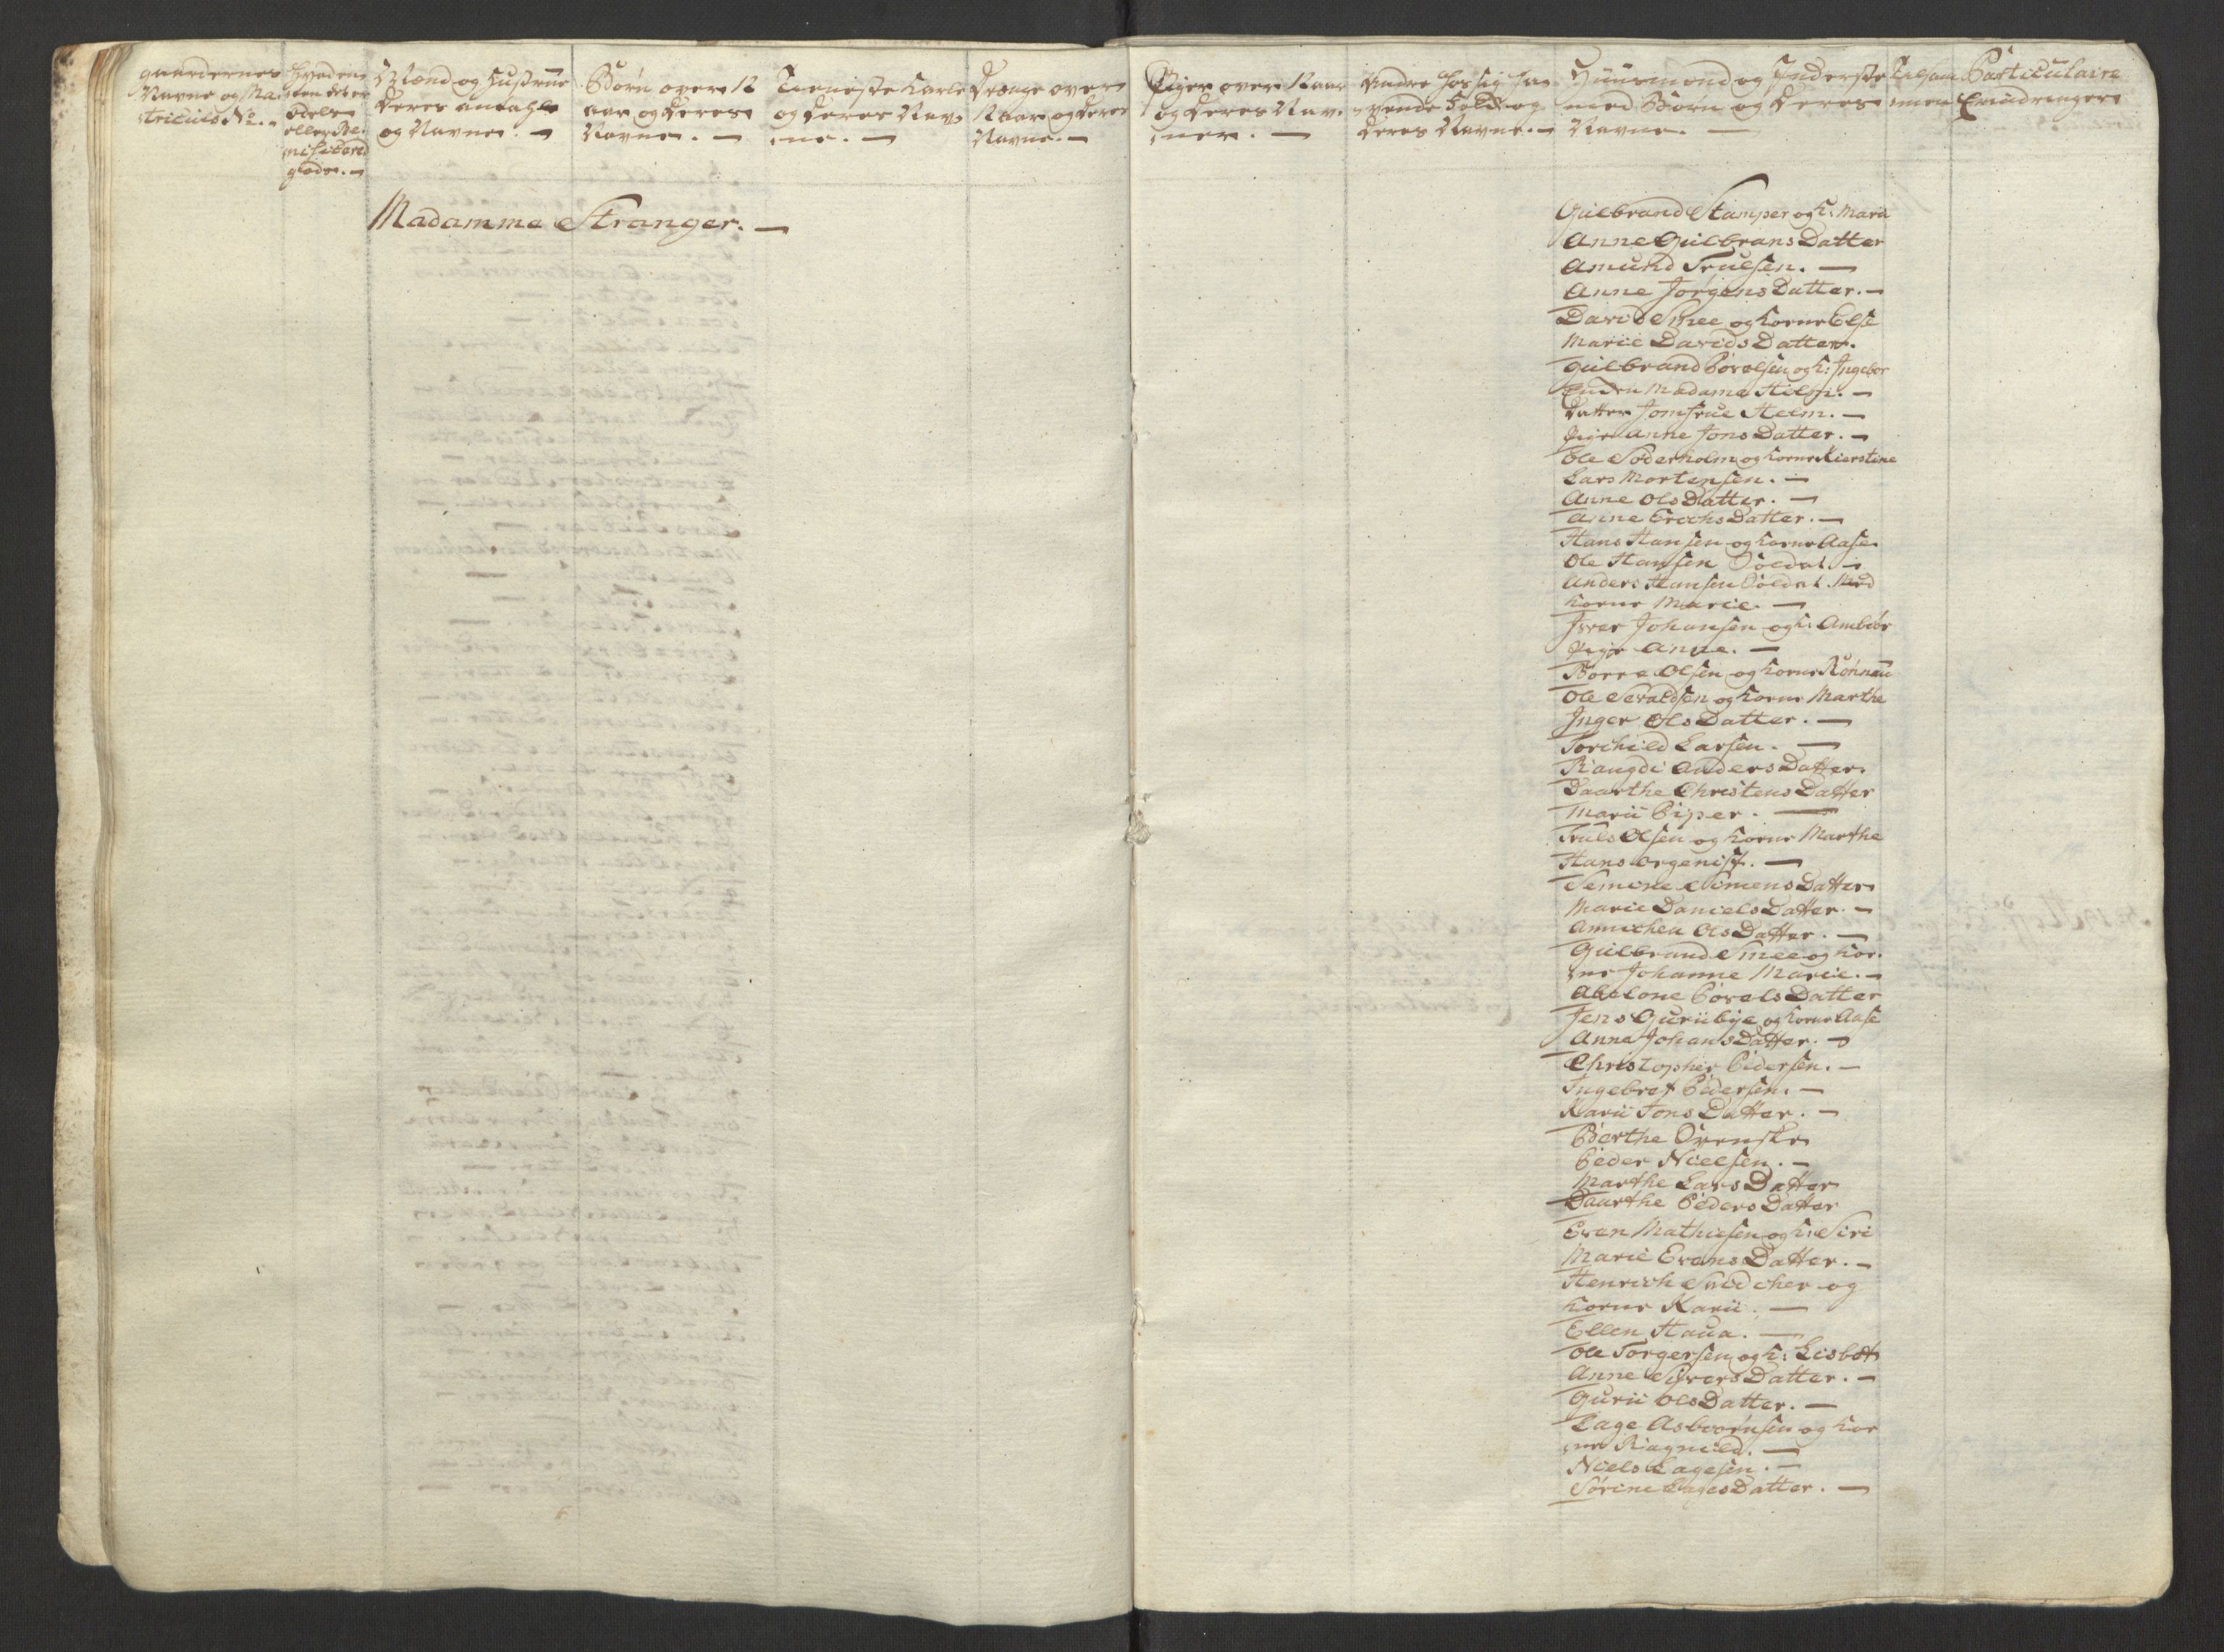 gaardernes
Navne og Ma-
triculs No. -
odels
eller Be-
neficeret
gods. -
Mænd og Hustruer
deres antahl
og Navne. -
Børn over 12
aar og deres
Navne. -
Tieneste Karle
og deres Nav-
ne. -
Drænge over
12 aar og deres
Navne. -
Piger over 12 aar
og deres Nav-
ner. -
Andre hos sig ha-
vende Folk og
deres Navne. -
Huusmænd og Inderste
med Børn og deres
Navne. -
Tilsam-
men
Particulaire
Erindringer
Madamme Stranger. -
Gulbrand Stamper og K: Mari
Anne Gulbrans Datter
Amund Trulsen. -
Anne Jørgens Datter. -
David Smee og Kone Else
Marie Davids Datter.
Gulbrand Povelsen og K: Ingebor
Enken Madame Helm. -
Datter Jomfrue Helm. -
Pige Anne Jons Datter. -
Ole Søderholm og Kone Kierstine
Lars Mortensen. -
Anne Ols Datter. -
Anne Erichs Datter. -
Hans Hansen og Kone Aase
Ole Hansen Soldat. -
Anders Hansen Soldat med
Kone Marie. -
Iver Johansen og K: Ambiør
Pige Anne. -
Borre Olsen og Kone Rønnau
Ole Sevaldsen og Kone Marthe
Inger Ols Datter. -
Torchild Larsen. -
Rangdi Anders Datter
Daarthe Christens Datter
Marii Piper. -
Truls Olsen og Kone Marthe
Hans Orgenist. -
Semine Simens Datter
Marie Daniels Datter. -
Annichen Ols Datter. -
Gulbrand Smee og Ko-
ne Johanne Marie. -
Abelone Povels Datter
Jens Guriibye og Kone Aase
Anne Johans Datter. -
Christopher Pedersen. -
Ingebret Pedersen. -
Karii Jons Datter. -
Berthe Svenske
Peder Nielsen. -
Marthe Lars Datter
Daarthe Peders Datter
Even Mathiesen og K: Siri
Marie Evens Datter. -
Henrich Snidcher og
Kone Karii. -
Ellen Haua. -
Ole Torgersen og K: Lisbet
Anne Sivers Datter. -
Gurii Ols Datter. -
Lage Asbiørnsen og Ko-
ne Ragnild. -
Niels Lagesen. -
Sørine Lages Datter. -